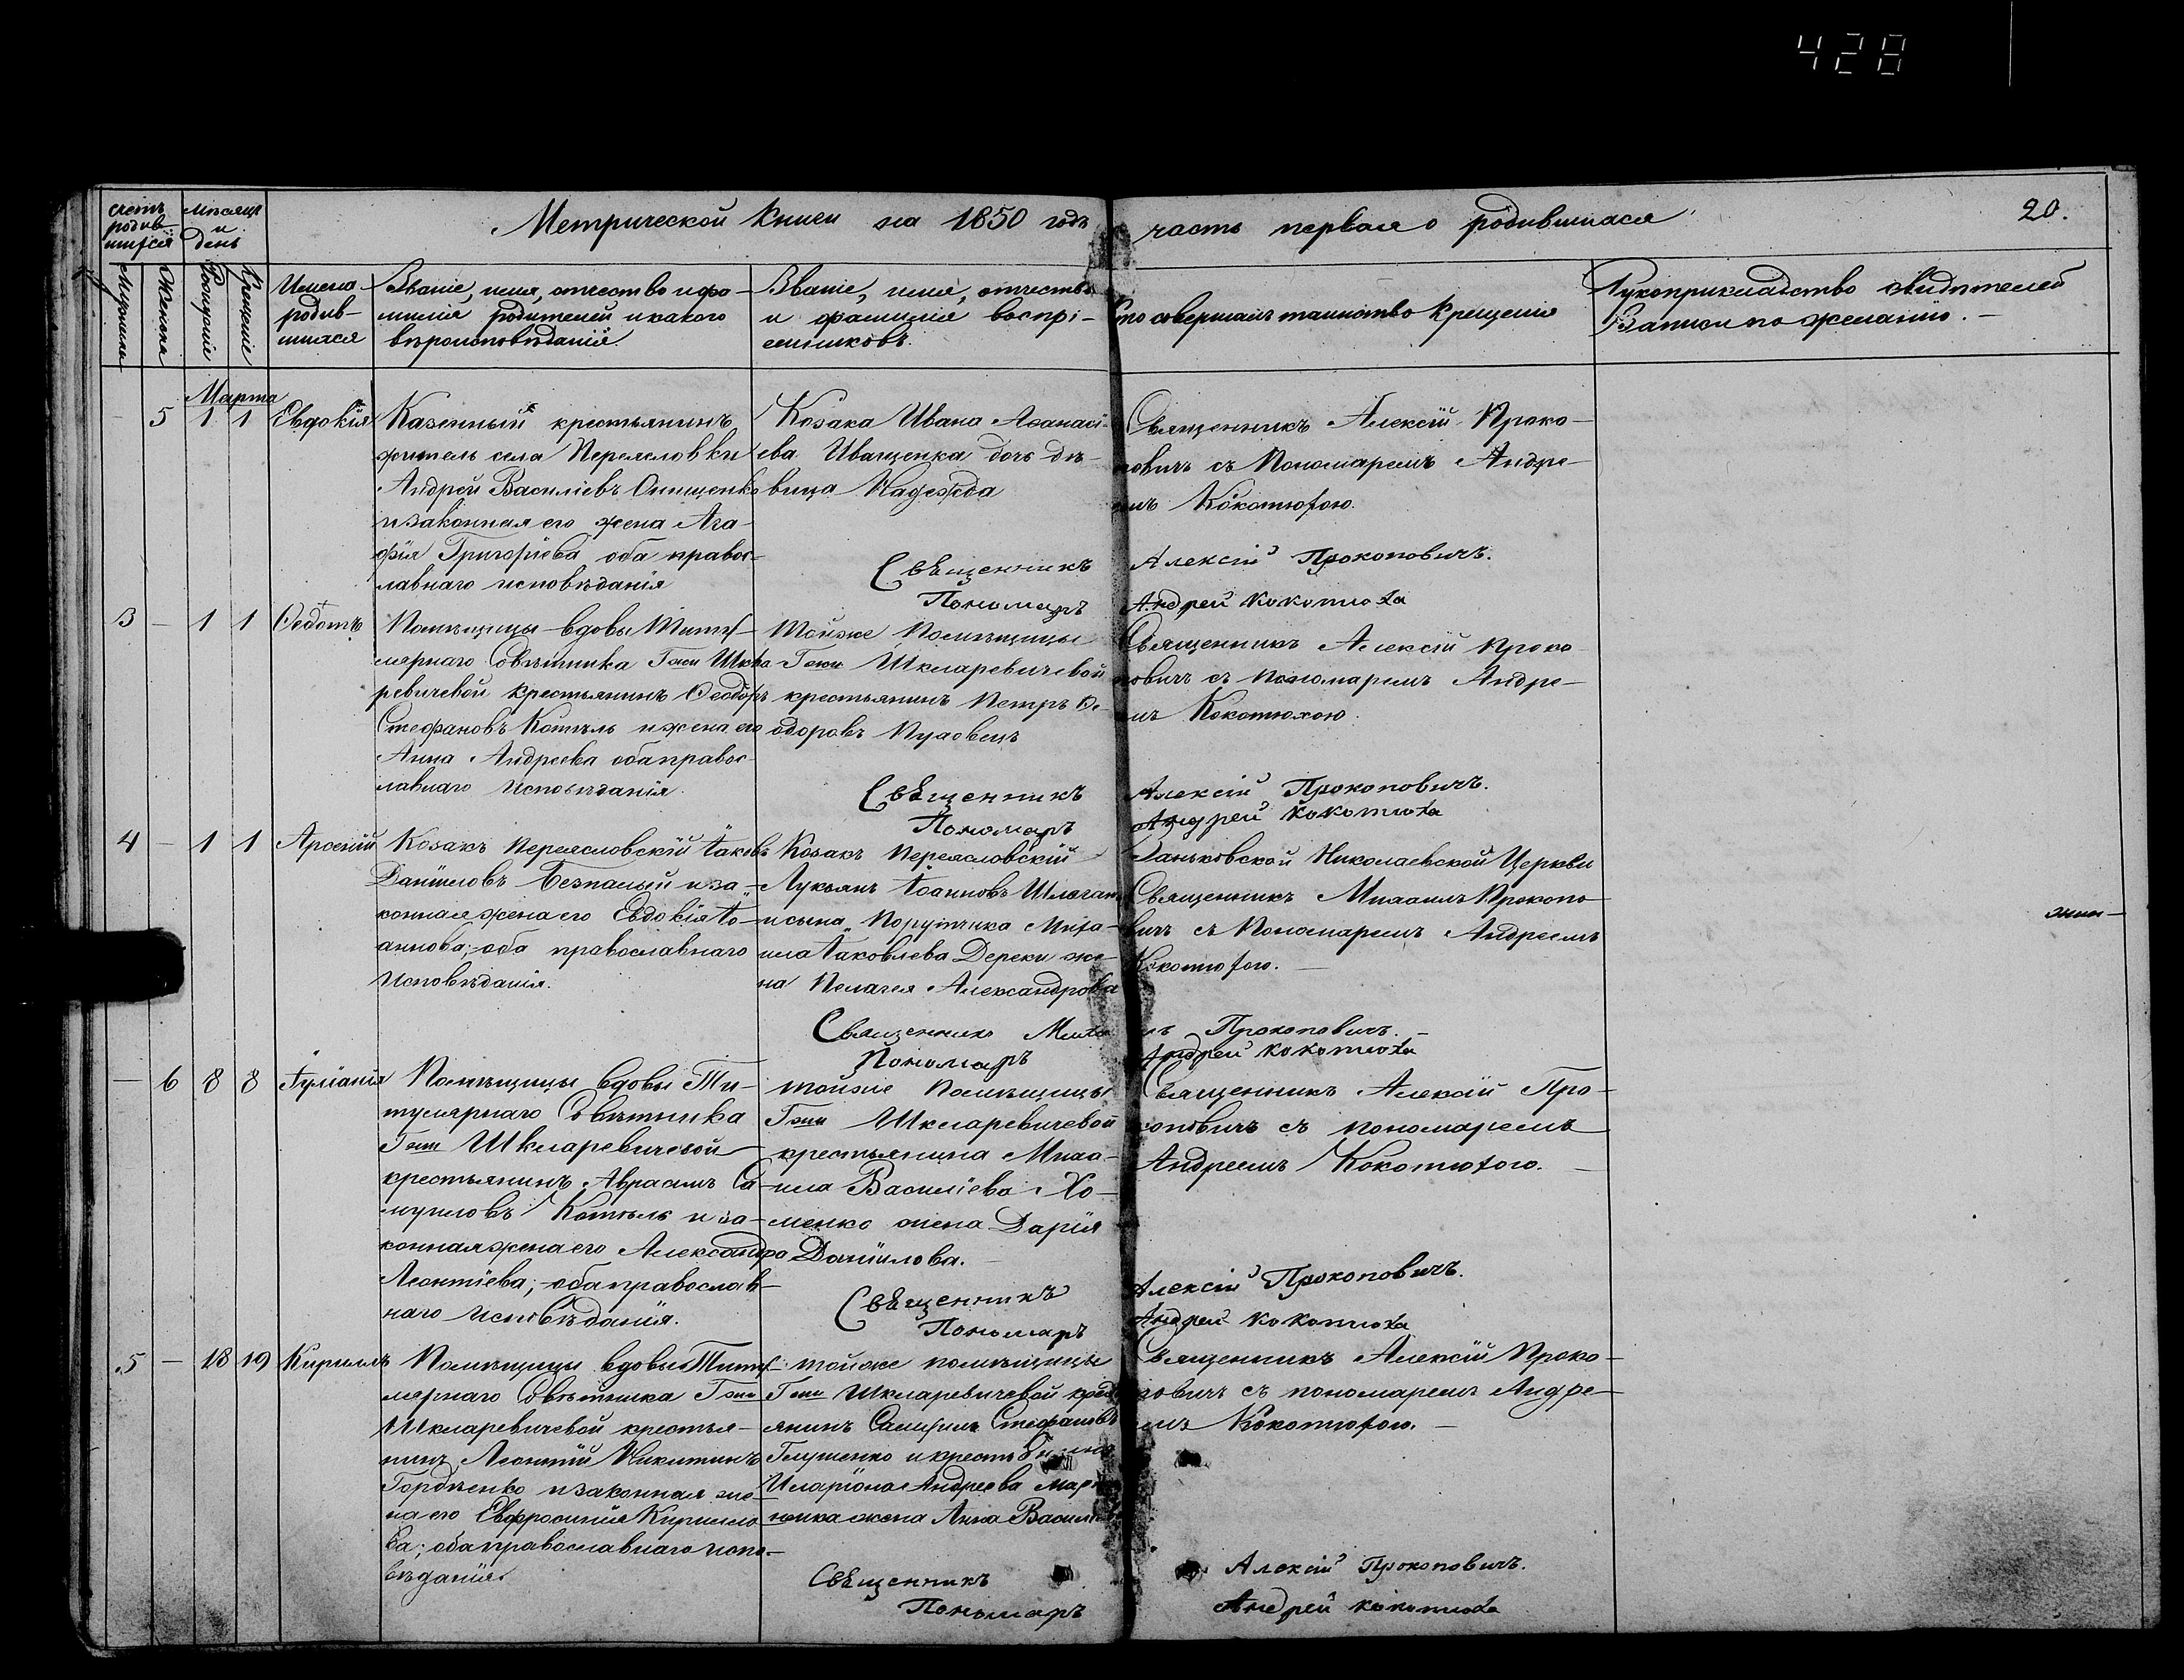 428
Метрической Книги на 1850 годъ часть первая о родившихся
20.
счетъ родив-шихся
Мѣсяцъ и день
Мужеска
Женска
Рожденіе
Крещеніе
Имена
родив-
шихся
Званіе, имя, отчество и фа-
милія родителей и какого
вѣроисповѣданія.
Званіе, имя, отчество
и фамилія воспрі-
емниковъ.
Кто совершалъ таинство Крещенія
Рукоприкладство свидѣтелей
Записи по желанію. —
Марта
5 1 1 Евдокія
Казенный крестьянинъ
житель села Переясловки
Андрей Василіевъ Онищенко
и законная его жена Ага-
фія Григоріева оба правос-
лавнаго исповѣданія
Козака Ивана Афанасі-
ева Иващенка дочь дѣ-
вица Надежда
Священникъ Алексій Проко-
повичъ съ Пономаремъ Андре-
емъ Кокотюхою.
Свѣщенникъ Алексій Прокоповичъ.
Пономаръ Андрей Кокотюха
3 — 1 1 Федотъ
Помѣщицы вдовы Титу-
лярнаго Совѣтника Гжи Шкла-
ревичевой крестьянинъ Феодоръ
Стефановъ Котъль и жена его
Анна Андреева оба правос-
лавнаго исповѣданія.
Тойже Помѣщицы
Гжи Шкларевичевой
крестьянинъ Петръ Фе-
одоровъ Пуховецъ
Священникъ Алексій Проко-
повичъ съ Пономаремъ Андре-
емъ Кокотюхою.
Свѣщенникъ Алексій Прокоповичъ.
Пономаръ Андрей Кокотюха
4 — 1 1 Арсеній
Козакъ Переясловскій Іаковъ
Даніиловъ Безпалый и за-
конная жена его Евдокія Іо-
аннова; оба православнаго
исповѣданія.
Козакъ Переясловскій
Лукьянъ Іоанновъ
и сына Порутчика Миха-
ила Іаковлева Дереки же-
на Пелагея Александрова
Даньковской Николаевской Церкви
Священникъ Михаилъ Прокопо-
вичъ съ Пономаремъ Андреемъ
Кокотюхою. —
Священникъ Михаилъ Прокоповичъ. —
Пономаръ Андрей Кокотюха
— 6 8 8 Іуліанія
Помѣщицы вдовы Ти-
тулярнаго Совѣтника
Гжи Шкларевичевой
крестьянинъ Авраамъ Са-
муиловъ Котъль и за-
конная жена его Александра
Леонтіева; оба православ-
наго исповѣданія.
тойже Помѣщицы
Гжи Шкларевичевой
крестьянина Миха-
ила Василіева Хо-
менко жена Дарія
Даніилова. —
Священникъ Алексій Про-
коповичъ съ пономаремъ
Андреемъ Кокотюхою. —
Свѣщенникъ Алексій Прокоповичъ.
Пономаръ Андрей Кокотюха
5 — 18 19 Кириллъ
Помѣщицы вдовы Титу-
лярнаго Совѣтника Гжи
Шкларевичевой крестья-
нинъ Леонтій Никитинъ
Гордѣенко и законная же-
на его Евфросинія Кирилло-
ва; оба православнаго испо-
вѣданія.
тойже помѣщицы
Гжи Шкларевичевой крест-
янинъ Самуилъ Стефановъ
Глушенко и крестьянина
Иларіона Андреева
жена Анна Василіева
Священникъ Алексій Проко-
повичъ съ пономаремъ Андре-
емъ Кокотюхою. —
Свѣщенникъ Алексій Прокоповичъ.
Пономаръ Андрей Кокотюха